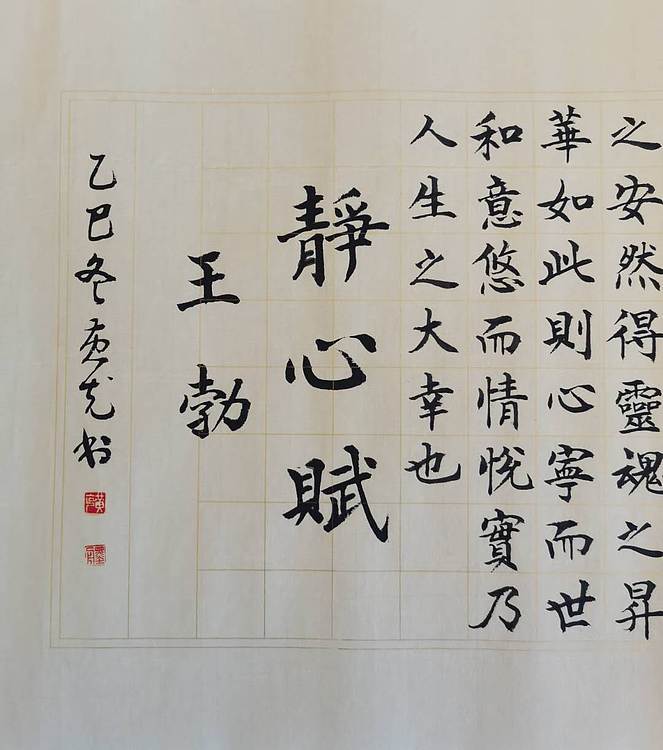 之安然得靈魂之昇
華如此則心寧而世
和意悠而情悅實乃
人生之大幸也
靜心賦
王勃
乙巳冬黃书